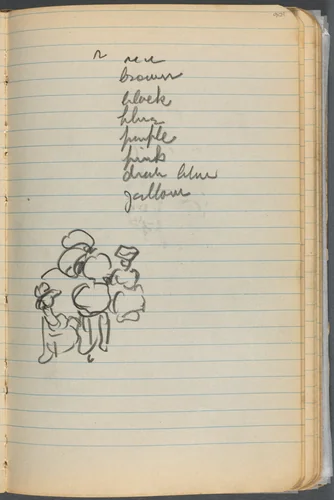 red
brown
black
blue
purple
pink
dark blue
yallow